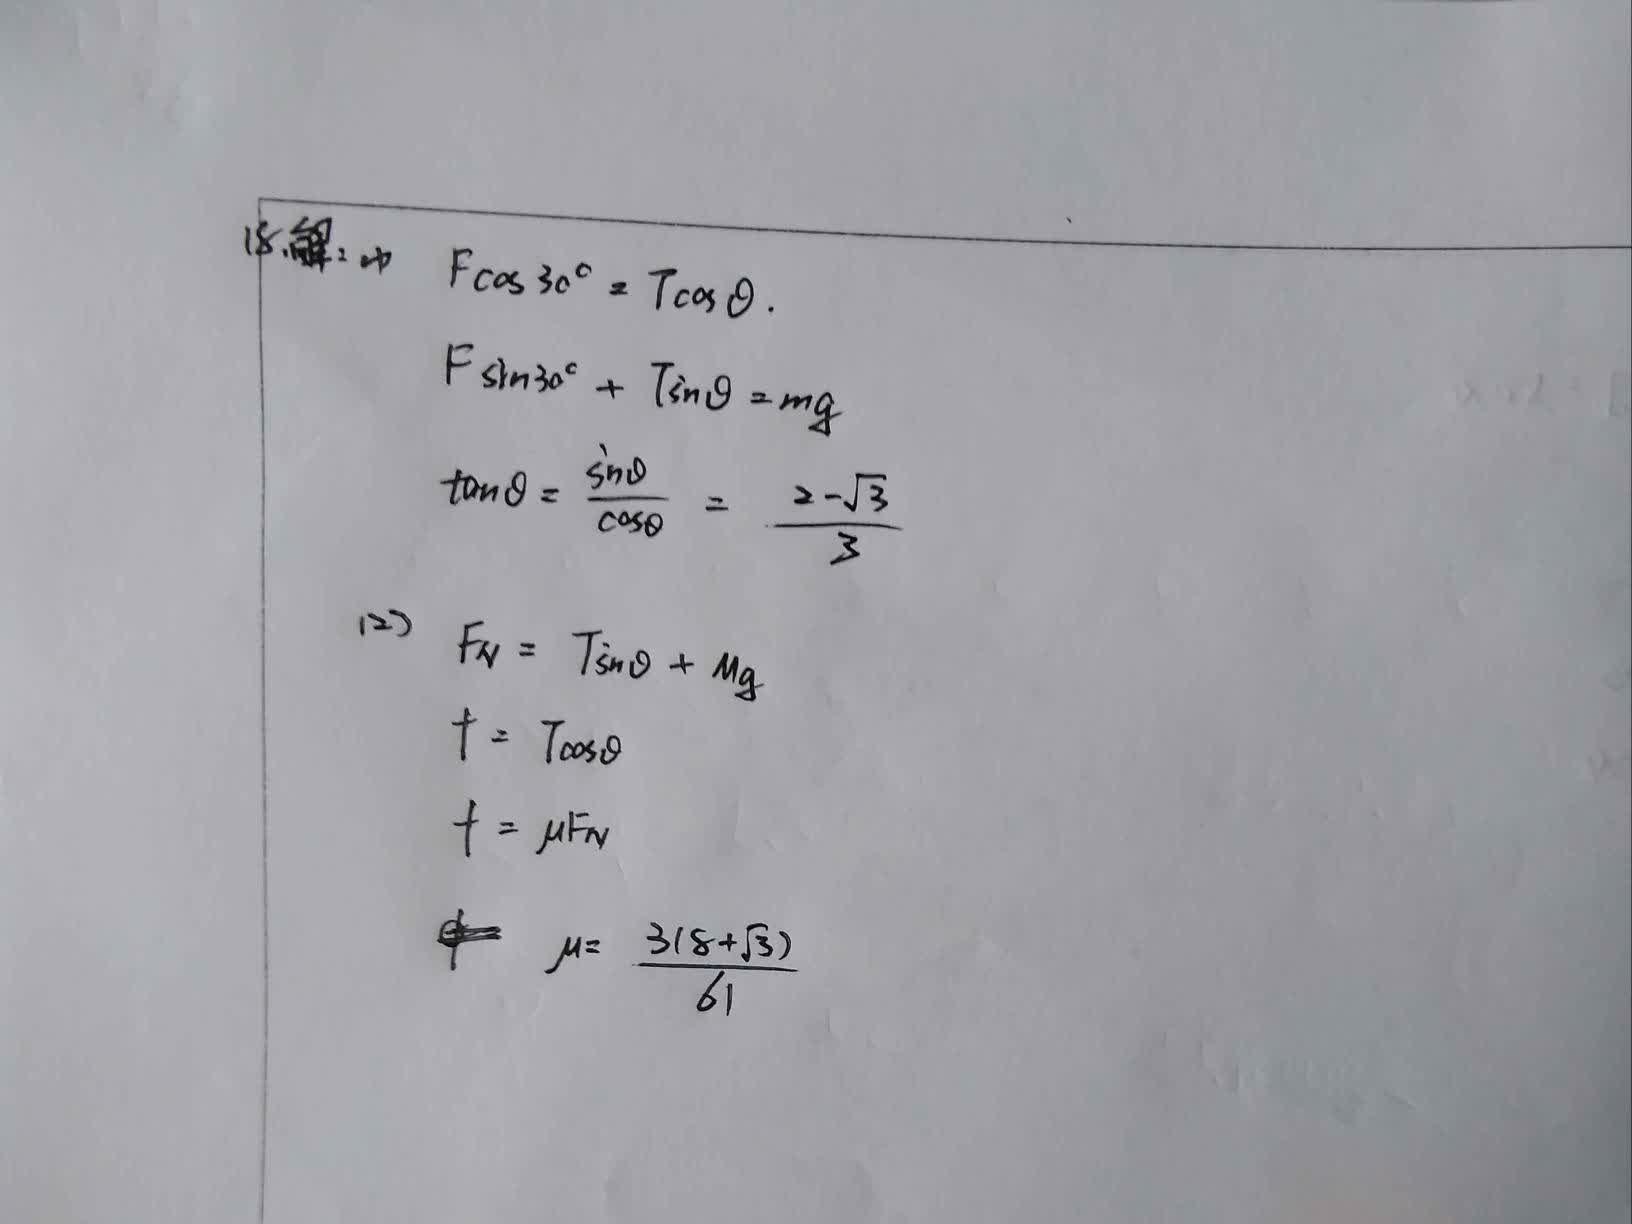 18.解:(1) Fcos30° = Tcosθ.
Fsin30° + Tsinθ = mg
tanθ = sinθ/cosθ = (2-√3)/3
(2) FN = Tsinθ + Mg
f = Tcosθ
f = μFN
μ= 3(8+√3)/61